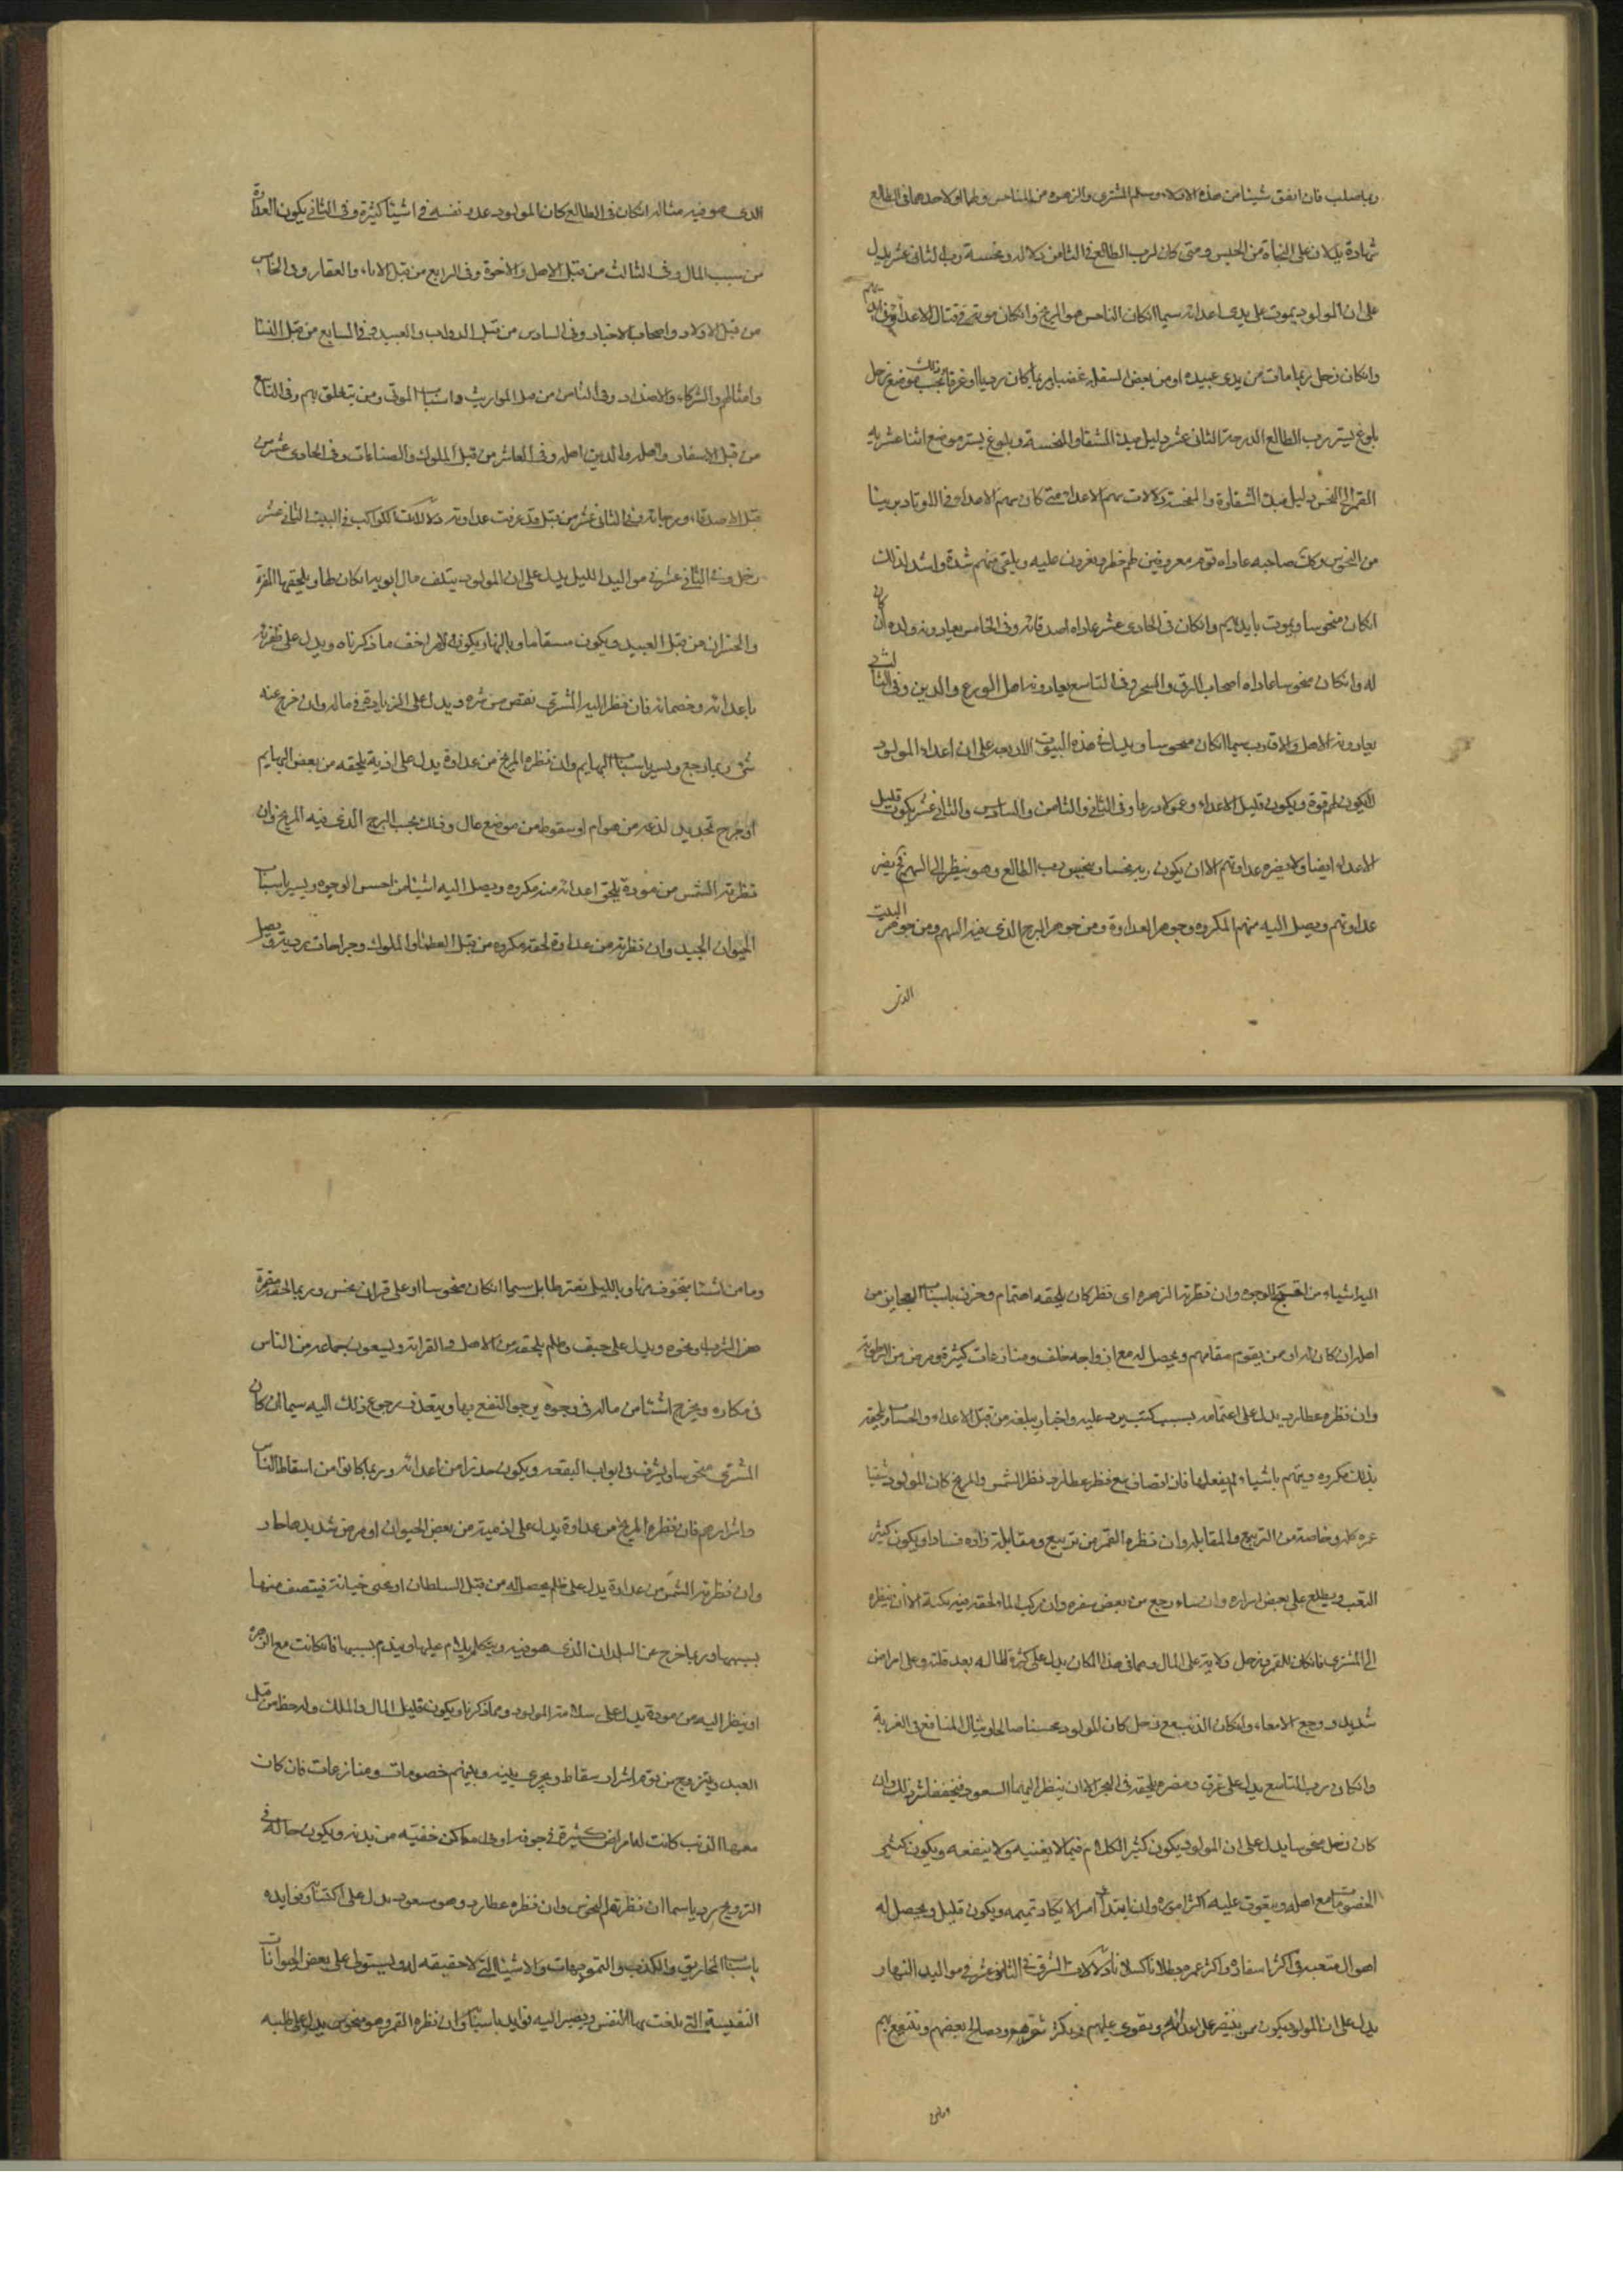 وربما صلب فان اتفق شيئا من هذه الاولاد وسلم المشترى والزهره من المناحس ولهما او لاحدهما فى الطالع
شهادة يدلان على النجاة من الحبس ومتى كان لرب الطالع فى الثامن دلالة ونحسه رب الثانى عشر يدل
على ان المولود يموت على يدى اعدائه سيما ان كان الناحس هو المريخ وان كان موته فى قتال الاعداء
وان كان زحل ربما مات من يدى عبيده او من بعض السفل غضبا وربما كان رديا او غرقا بحسب موضع زحل
بلوغ تسير رب الطالع الى درجة الثانى عشر دليل مبدأ الشقا والمنحسة وبلوغ تسير موضع اثنا عشريه
القمر الى النحس دليل مبدأ الشقاوة والمنحسة دلالات سهم الاعداء متى كان سهم الاعداء فى الاوتاد بريئا
من النحوس وكذلك صاحبه عاداه قوم معروفين لهم خطر ويغرون عليه ويلقى منهم شدة واشد لذلك
ان كان منحوسا ويموت بايديهم وان كان فى الحادى عشر عاداه اصدقائه وفى الخامس يعادونه ولده ان كان
له وان كان منحوسا عاداه اصحاب الرقى والسحر وفى التاسع يعادونه اهل الورع والدين وفى الثالث
يعادونه الاهل والاقارب سيما ان كان منحوسا ويدل فى هذه البيوت الاربعه على ان اعداء المولود
لا يكون لهم قوة ويكون قليل الاعداء وفى الثانى والثامن والسادس والثانى عشر يكون قليل
الاعداء ايضا ولا يضره عداوتهم الا ان يكون ربه نحسا وينحس رب الطالع وهو ينظر الى السهم فحينئذ يضر
عداوتهم ويصل اليه منهم المكروه وجوهر العداوة ومن جوهر البرج الذى فيه السهم ومن جوهر البيت
الذى
الذى هو فيه مثاله ان كان فى الطالع كان المولود عدو نفسه فى اشيئا كثيرة وفى الثانى يكون العداوة
من سبب المال وفى الثالث من قبل الاهل والاخوة وفى الرابع من قبل الاباء والعقار وفى الخامس
من قبل الاولاد واصحاب الاخبار وفى السادس من قبل الدواب والعبيد وفى السابع من قبل النسا
وامثالهم والشركاء والاضداد وفى الثامن من قبل المواريث واسباب الموتى ومن يتعلق بهم وفى التاسع
من قبل الاسفار واهله والدين اهله وفى العاشر من قبل الملوك والصناعات وفى الحادى عشر من
قبل الاصدقاء ورجائه وفى الثانى عشر من قبل قد عرفت عداوته دلالات الكواكب فى البيت الثانى عشر
زحل فى الثانى عشر فى مواليد الليل يدل على ان المولود يتلف مال ابويه ان كان لهما ويلحقهما المضرة
والخسران من قبل العبيد ويكون مسقاما وبالنهار يكون الامر اخف ما ذكرناه ويدل على ظفرته
باعدائه وخصمائه فان نظر اليه المشترى نقص من شره ويدل على الزيادة فى ماله وان خرج عنه
شئ ربما رجع ويسير باسباب البهايم وان نظره المريخ من عداوة يدل على اذية يلحقه من بعض البهايم
او جرح بحديد لدغه من هوام او سقوط من موضع عال وذلك بحسب البرج الذى فيه المريخ وان
نظرته الشمس من مودة يلحق اعدائه منه مكروه ويصل اليه اشيئا من احسن الوجوه ويسير باسباب
الحيوان الجيد وان نظرته من عداوة لحقه مكروه من قبل العظما والملوك وجراحات رديئة ويصل
اليه اشياء من اقبح الوجوه وان نظرته الزهره اى نظر كان يلحقه اهتمام وحزن باسباب العجايز من
اهله ان كان له او من يقوم مقامهم ويحصل له مع ازواجه خلف ومنازعات كثيرة ومرض من الرطوبة
وان نظره عطارد يدل على اغتمامه بسبب كتب يرد عليه واخبار يبلغه من قبل الاعداء والحساب ويلحقه
بذلك مكروه ويتهم باشياء لم يفعلها فان انضاف مع نظر عطارد نظر الشمس والمريخ كان المولود شقيا
عمره كله وخاصة من التربيع والمقابله وان نظره القمر من تربيع ومقابلة زاده فسادا ويكون كثير
التعب ويطلع على بعض اسراره وان ساء رجع من بعض سفره وان ركب الماء لحقه فيه نكبة الا ان ينظره
الى المشترى فان كان للقمر وزحل ولاية على المال وهما فى هذا المكان يدل على كثرة المال له بعد قلته وعلى امراض
شديد ووجع الامعاء وان كان الذنب مع زحل كان المولود محسنا صالحا وينال المنافع فى الغربة
وان كان رب التاسع يدل على غرق ومضره يلحقه فى البحر الا ان ينظر اليهما السعود فيخفف شر ذلك وان
كان زحل منحوسا يدل على ان المولود يكون كثير الكلام فيما لا يعنيه ولا ينفعه ويكون كثير
الخصومات مع اهله ويتعوق عليه اكثر اموره وان ابتدأ امرا لا يكاد تميمه ويكون قليل ويحصل له
اهوال متعبه فى اكثر اسفاره واكثر عمره بطلانا كسلانا دلالات المشترى فى الثانى عشر فى مواليد النهار
يدل على ان المولود يكون ممن ينتصر على اعدائه ويقوى عليهم ويصالح بعضهم وينتفع بهم
وما من
وما من اشيئا يتخوف منها وبالليل سيما ان كان منحوسا او على قران نحس وربما لحقه مضرة
من الشراب ونحوه ويدل على حيف وظلم يلحقه من الاهل والقرابة ويسعون جماعه من الناس
فى مكاره ويخرج اشيئا من ماله فى وجوه يرجو النفع بها ويتعذر رجوع ذلك اليه سيما ان كان
المشترى منحوسا ويشرف فى ابواب النفقه ويكون حذرا من اعدائه وربما كانوا من اسقاط الناس
واشرارهم فان نظره المريخ من عداوة يدل على اذية من بعض الحيوان او مرض شديد حاد
وان نظرته الشمس من عداوة يدل على ظلم يحصل له من قبل السلطان او عمى خيانة فينتصف منها
بسببها وربما خرج عن البلدان الذى هو فيه ويتكلم بكلام عليها ويندم بسببها فان كانت مع الزهرة
او ينظر اليه من مودة يدل على سلامة المولود ومما ذكرنا ويكون قليل المال والملك وله حظ من قبل
العبيد ويتزوج من قوم اشرار سقاط ويجرى بينه وبينهم خصومات ومنازعات فان كان
معهما الذنب كانت له امراض كثيرة فى جوفه او فى اماكن خفية من بدنه ويكون حاله فى
التزويج رديا سيما ان نظرتهم النحوس وان نظره عطارد وهو مسعود يدل على اكتساب فوايده
باسباب المخاريق والكذب والتمويهات والاشيئا التى لا حقيقه لها ويستولى على بعض الحيوانات
النفيسة التى بلغت بها النفس ويصير اليه فوايد باسبابها وان نظره القمر وهو منحوس يدل على طلبه